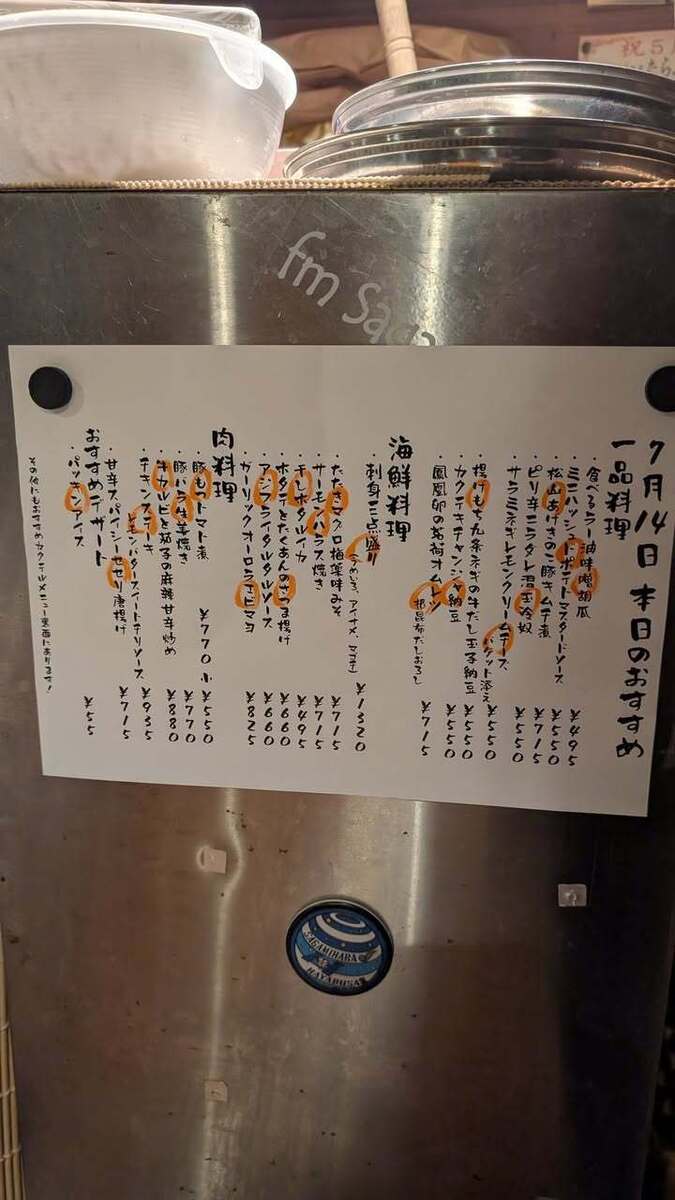 祝5
fm Saga
7月14日 本日のおすすめ
一品料理
・食べるラー油味噌胡瓜
・ミニハッシュドポテイトマスタードソース ¥495
・松山あげきのこ豚キムチ煮 ¥550
・ピリ辛ニラダレ温玉冷奴 ¥715
・サラミネギレモンクリームチーズ、バケット添え ¥550
・揚げもち九条ネギの牛だし玉子納豆 ¥550
・カクテキチャンジャ納豆 ¥550
・鳳凰卵の茗荷オムレツ 根昆布だしおろし ¥715
海鮮料理
・刺身三点盛り ¥1320
アイナメ、マゴチ)
・たたきマグロ梅薬味みそ ¥715
・サーモンハラス焼き ¥715
・チレポタルイカ ¥495
・ホタテとたくあんのさつま揚げ ¥660
・アジフライタルタルソース ¥660
・ガーリックオーロラエビマヨ ¥825
肉料理
・豚もつトマト煮 ¥770 小¥550
・豚バラ生姜焼き ¥770
・牛カルビと茄子の麻辣甘辛炒め ¥880
・チキンステーキ レモンバタースイートチリソース ¥935
・甘辛スパイシーセセリ唐揚げ ¥715
おすすめデザート
・パッキンアイス ¥55
その他にもおすすめカクテルメニュー裏面にあります！
SAGAMIHARA
HAYABUSA